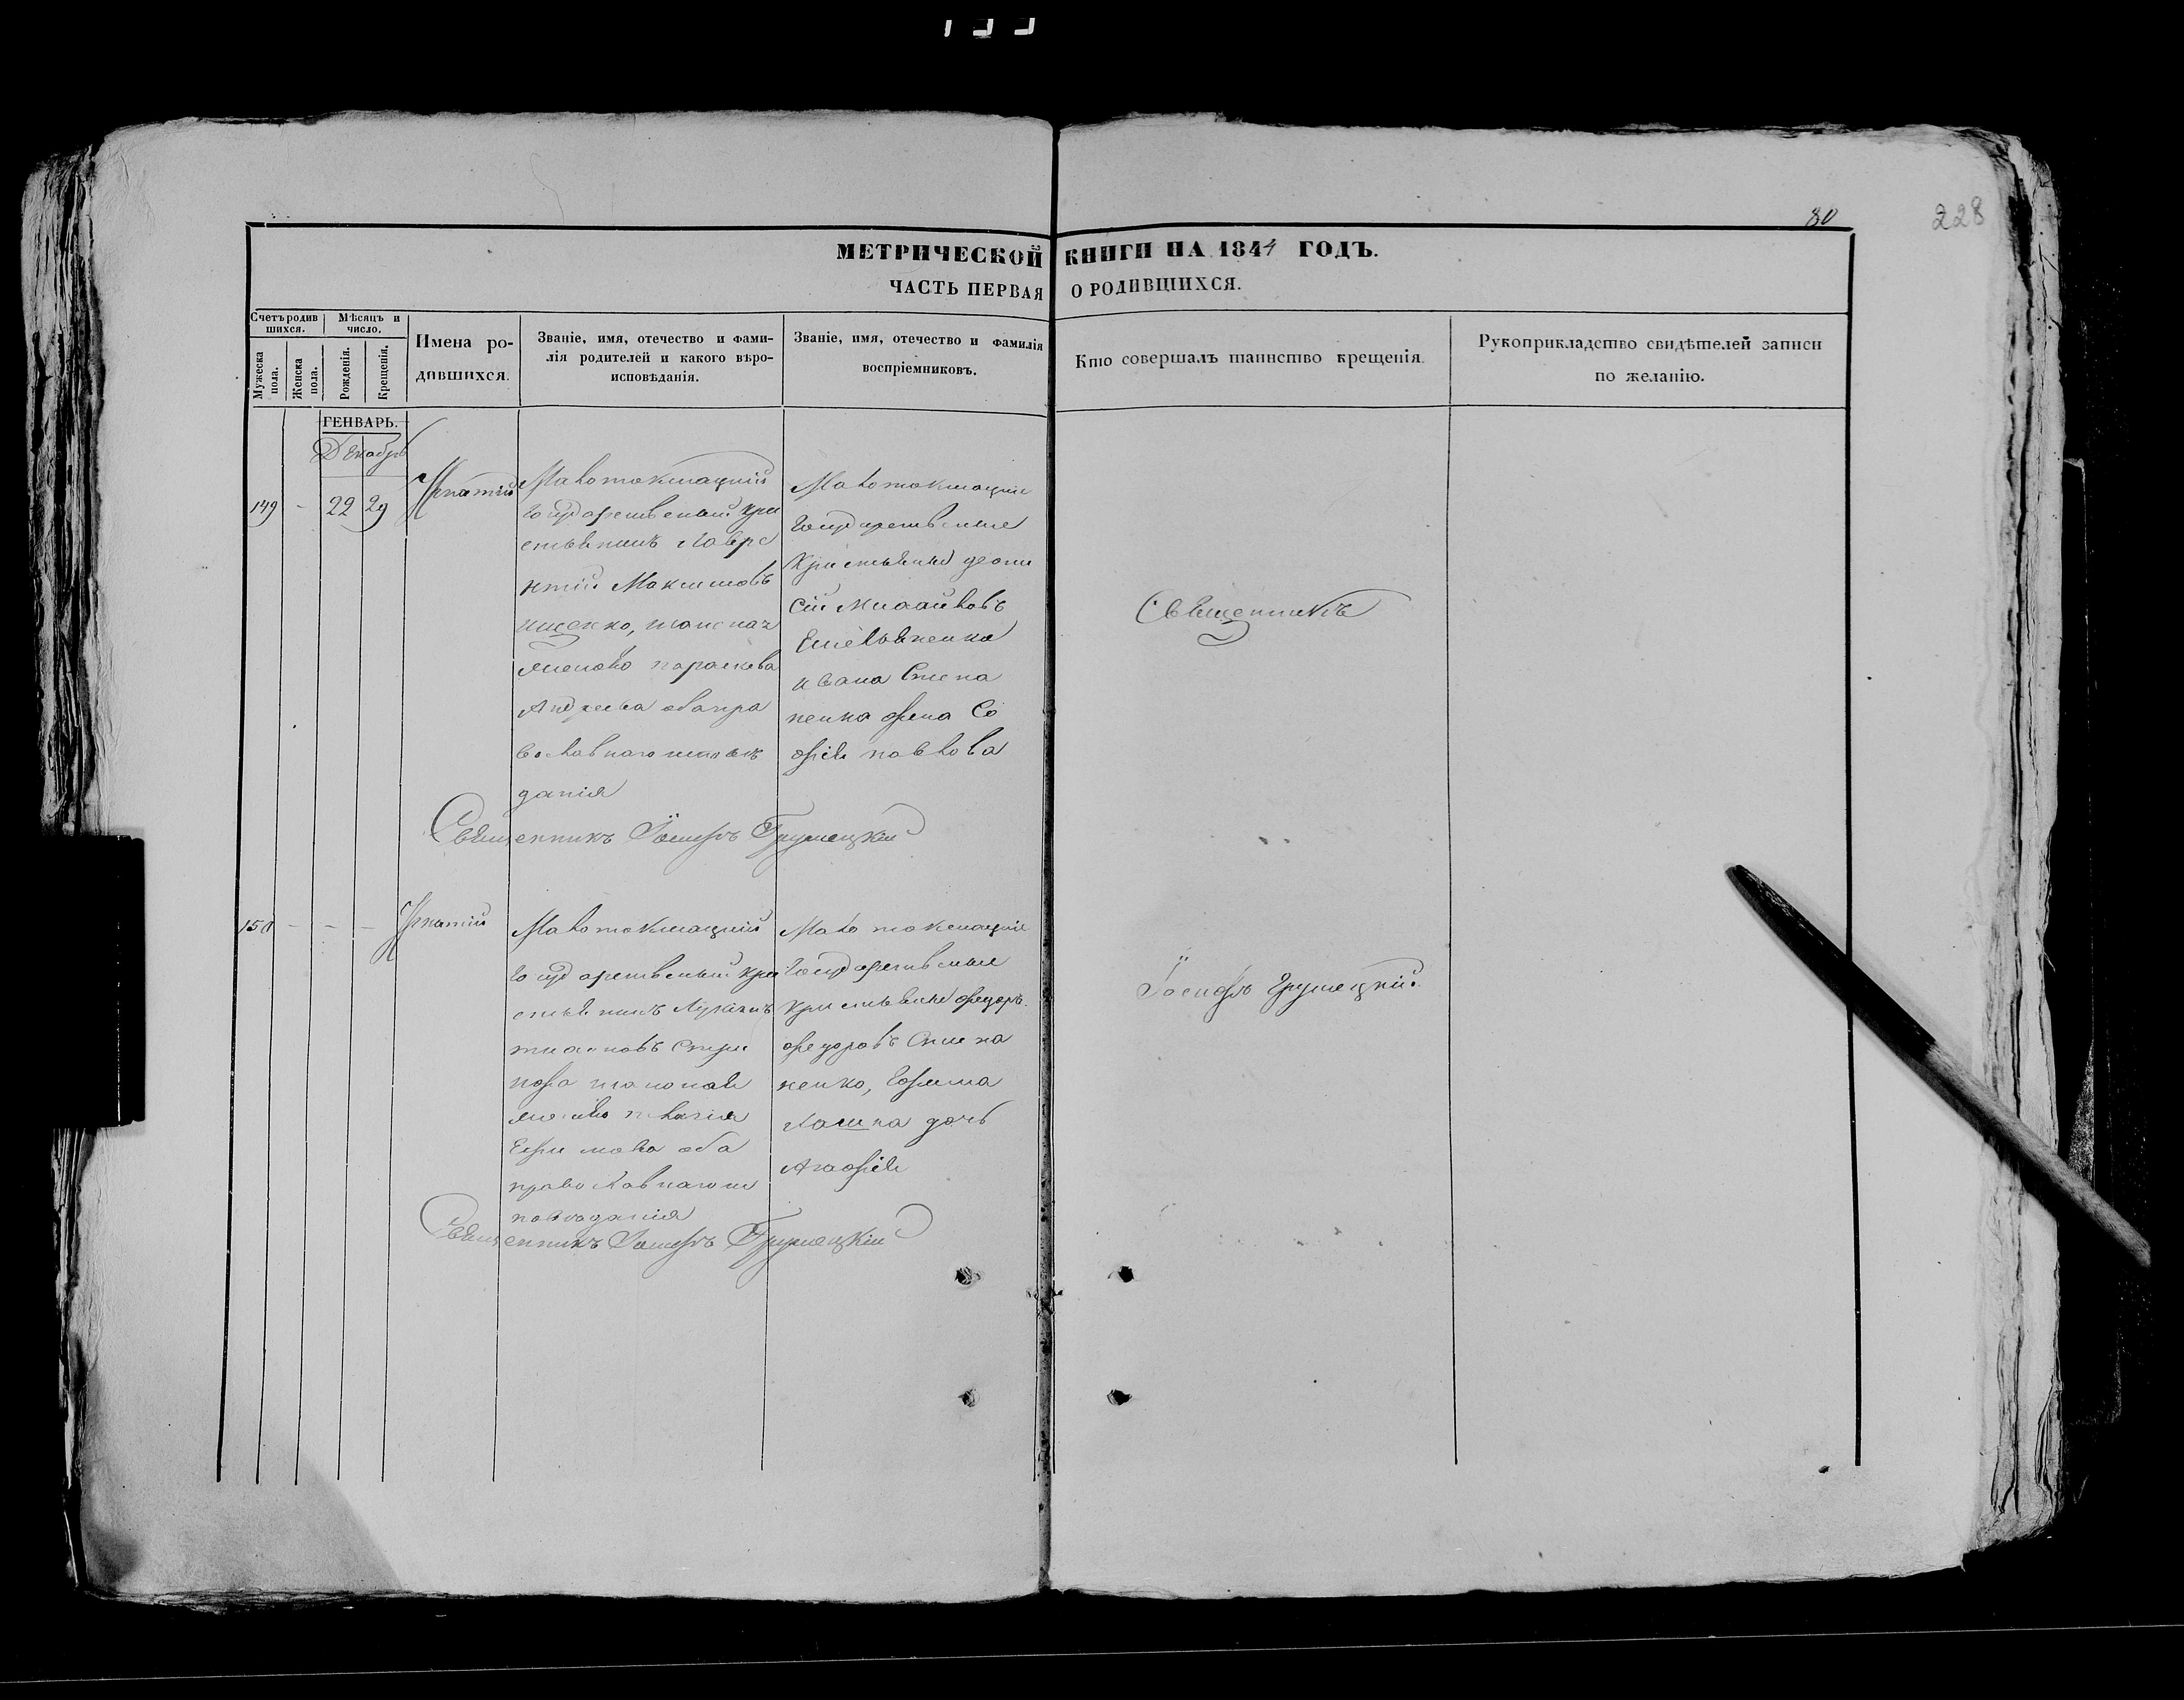 80
228
МЕТРИЧЕСКОЙ КНИГИ НА 1844 ГОДЪ.
ЧАСТЬ ПЕРВАЯ О РОДИВШИХСЯ.
Счетъ родившихся.
Мѣсяцъ и число.
Мужеска пола.
Женска пола.
Рожденія.
Крещенія.
Имена родившихся.
Званіе, имя, отечество и фамилія родителей и какого вѣроисповѣданія.
Званіе, имя, отечество и фамилія воспріемниковъ.
Кто совершалъ таинство крещенія.
Рукоприкладство свидѣтелей записи по желанію.
ГЕНВАРЬ.
Декабрь
149 - 22 29
Игнатій
Малотокмацкій
государственный кре
стьянинъ Лавре
нтій Максимовъ
ищенко, жена
Параскева
Андреева оба пра
вославнаго исповѣ
данія
Малотокмацкіе
государственные
крестьяне Діони
сій
Емельяненко
Ивана Степа
ненка жена Со
фія Павлова
Священникъ
Священникъ Іосифъ Грушецкій
150 - - -
Игнатій
Малотокмацкій
государственный кре
стьянинъ
жена
Ефимова оба
православнаго ис
повѣданія
Малотокмацкіе
государственные
крестьяне Федоръ
Федоровъ Степа
ненко, Ефима
дочь
Агафія
Іосифъ Грушецкій.
Священникъ Іосифъ Грушецкій